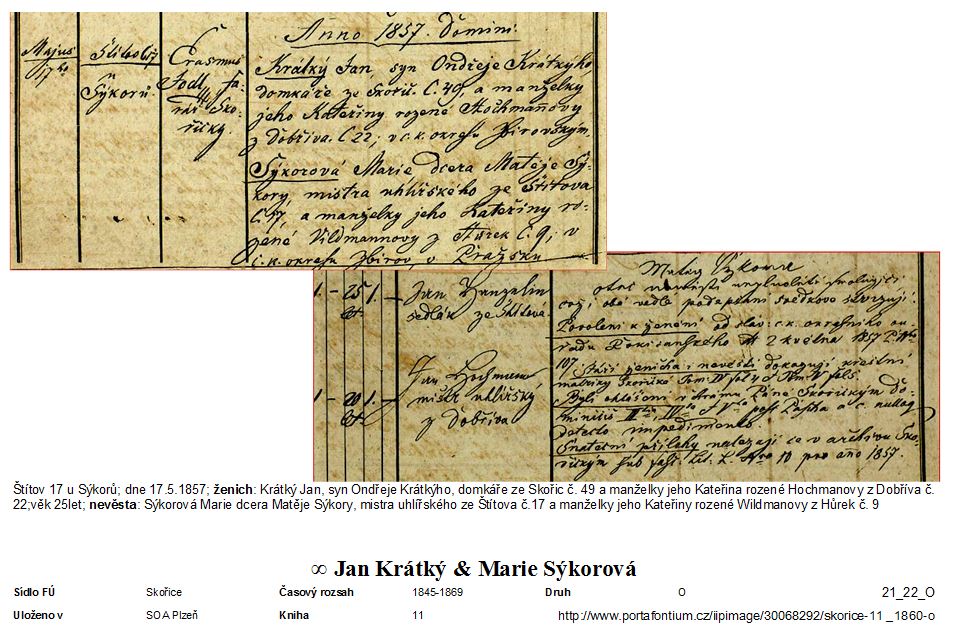 Anno 1857. Domini.
Majus
17
Štítov 17
u
Sýkorů.
Erasmus
Jodl, fa-
rář Sko-
řický.
Krátký Jan, syn Ondřeje Krátkýho,
domkáře ze Skořic. Č. 49, a manželky
jeho Kateřiny rozené Hochmanovy
z Dobříva. Č 22; v c. k. okresu Zbirovském.
Sýkorová Marie, dcera Matěje Sý-
kory, mistra uhlířského ze Štítova
Č. 17, a manželky jeho Kateřiny ro-
zené Vildmannovy z Hůrek č. 9; v
c. k. okresu Zbirov, v Pražsku
1. - 25 1. -
let.
Jan
sedlák ze Štítova.
1 - 20 1 -
let.
Jan Hochmann
mistr uhlířský
z Dobříva
Matěj Sýkora
otec nevěsty
což, obě vedle podepsaní svědkové stvrzují.
Povolení k ženění od slav. c. k. okresního ou-
řadu Rokicanského 2 května 1857
107. ženicha i nevěsti dokazují křestní
matriky Skořické Tom. IV fol. Tom. V fol.
Byli ohlášeni v chrámu Páně Skořickým Do-
minicis post Pascha a c. nullo
detecto impedimento.
přílohy nalezají se v archivu Sko-
řickým pro año 1857.
Štítov 17 u Sýkorů; dne 17.5.1857; ženich: Krátký Jan, syn Ondřeje Krátkýho, domkáře ze Skořic č. 49 a manželky jeho Kateřina rozené Hochmanovy z Dobříva č.
22;věk 25let; nevěsta: Sýkorová Marie dcera Matěje Sýkory, mistra uhlířského ze Štítova č.17 a manželky jeho Kateřiny rozené Wildmanovy z Hůrek č. 9
∞ Jan Krátký & Marie Sýkorová
Sídlo FÚ Skořice Časový rozsah 1845-1869 Druh O 21_22_O
Uloženo v SOA Plzeň Kniha 11 http://www.portafontium.cz/iipimage/30068292/skorice-11_1860-o